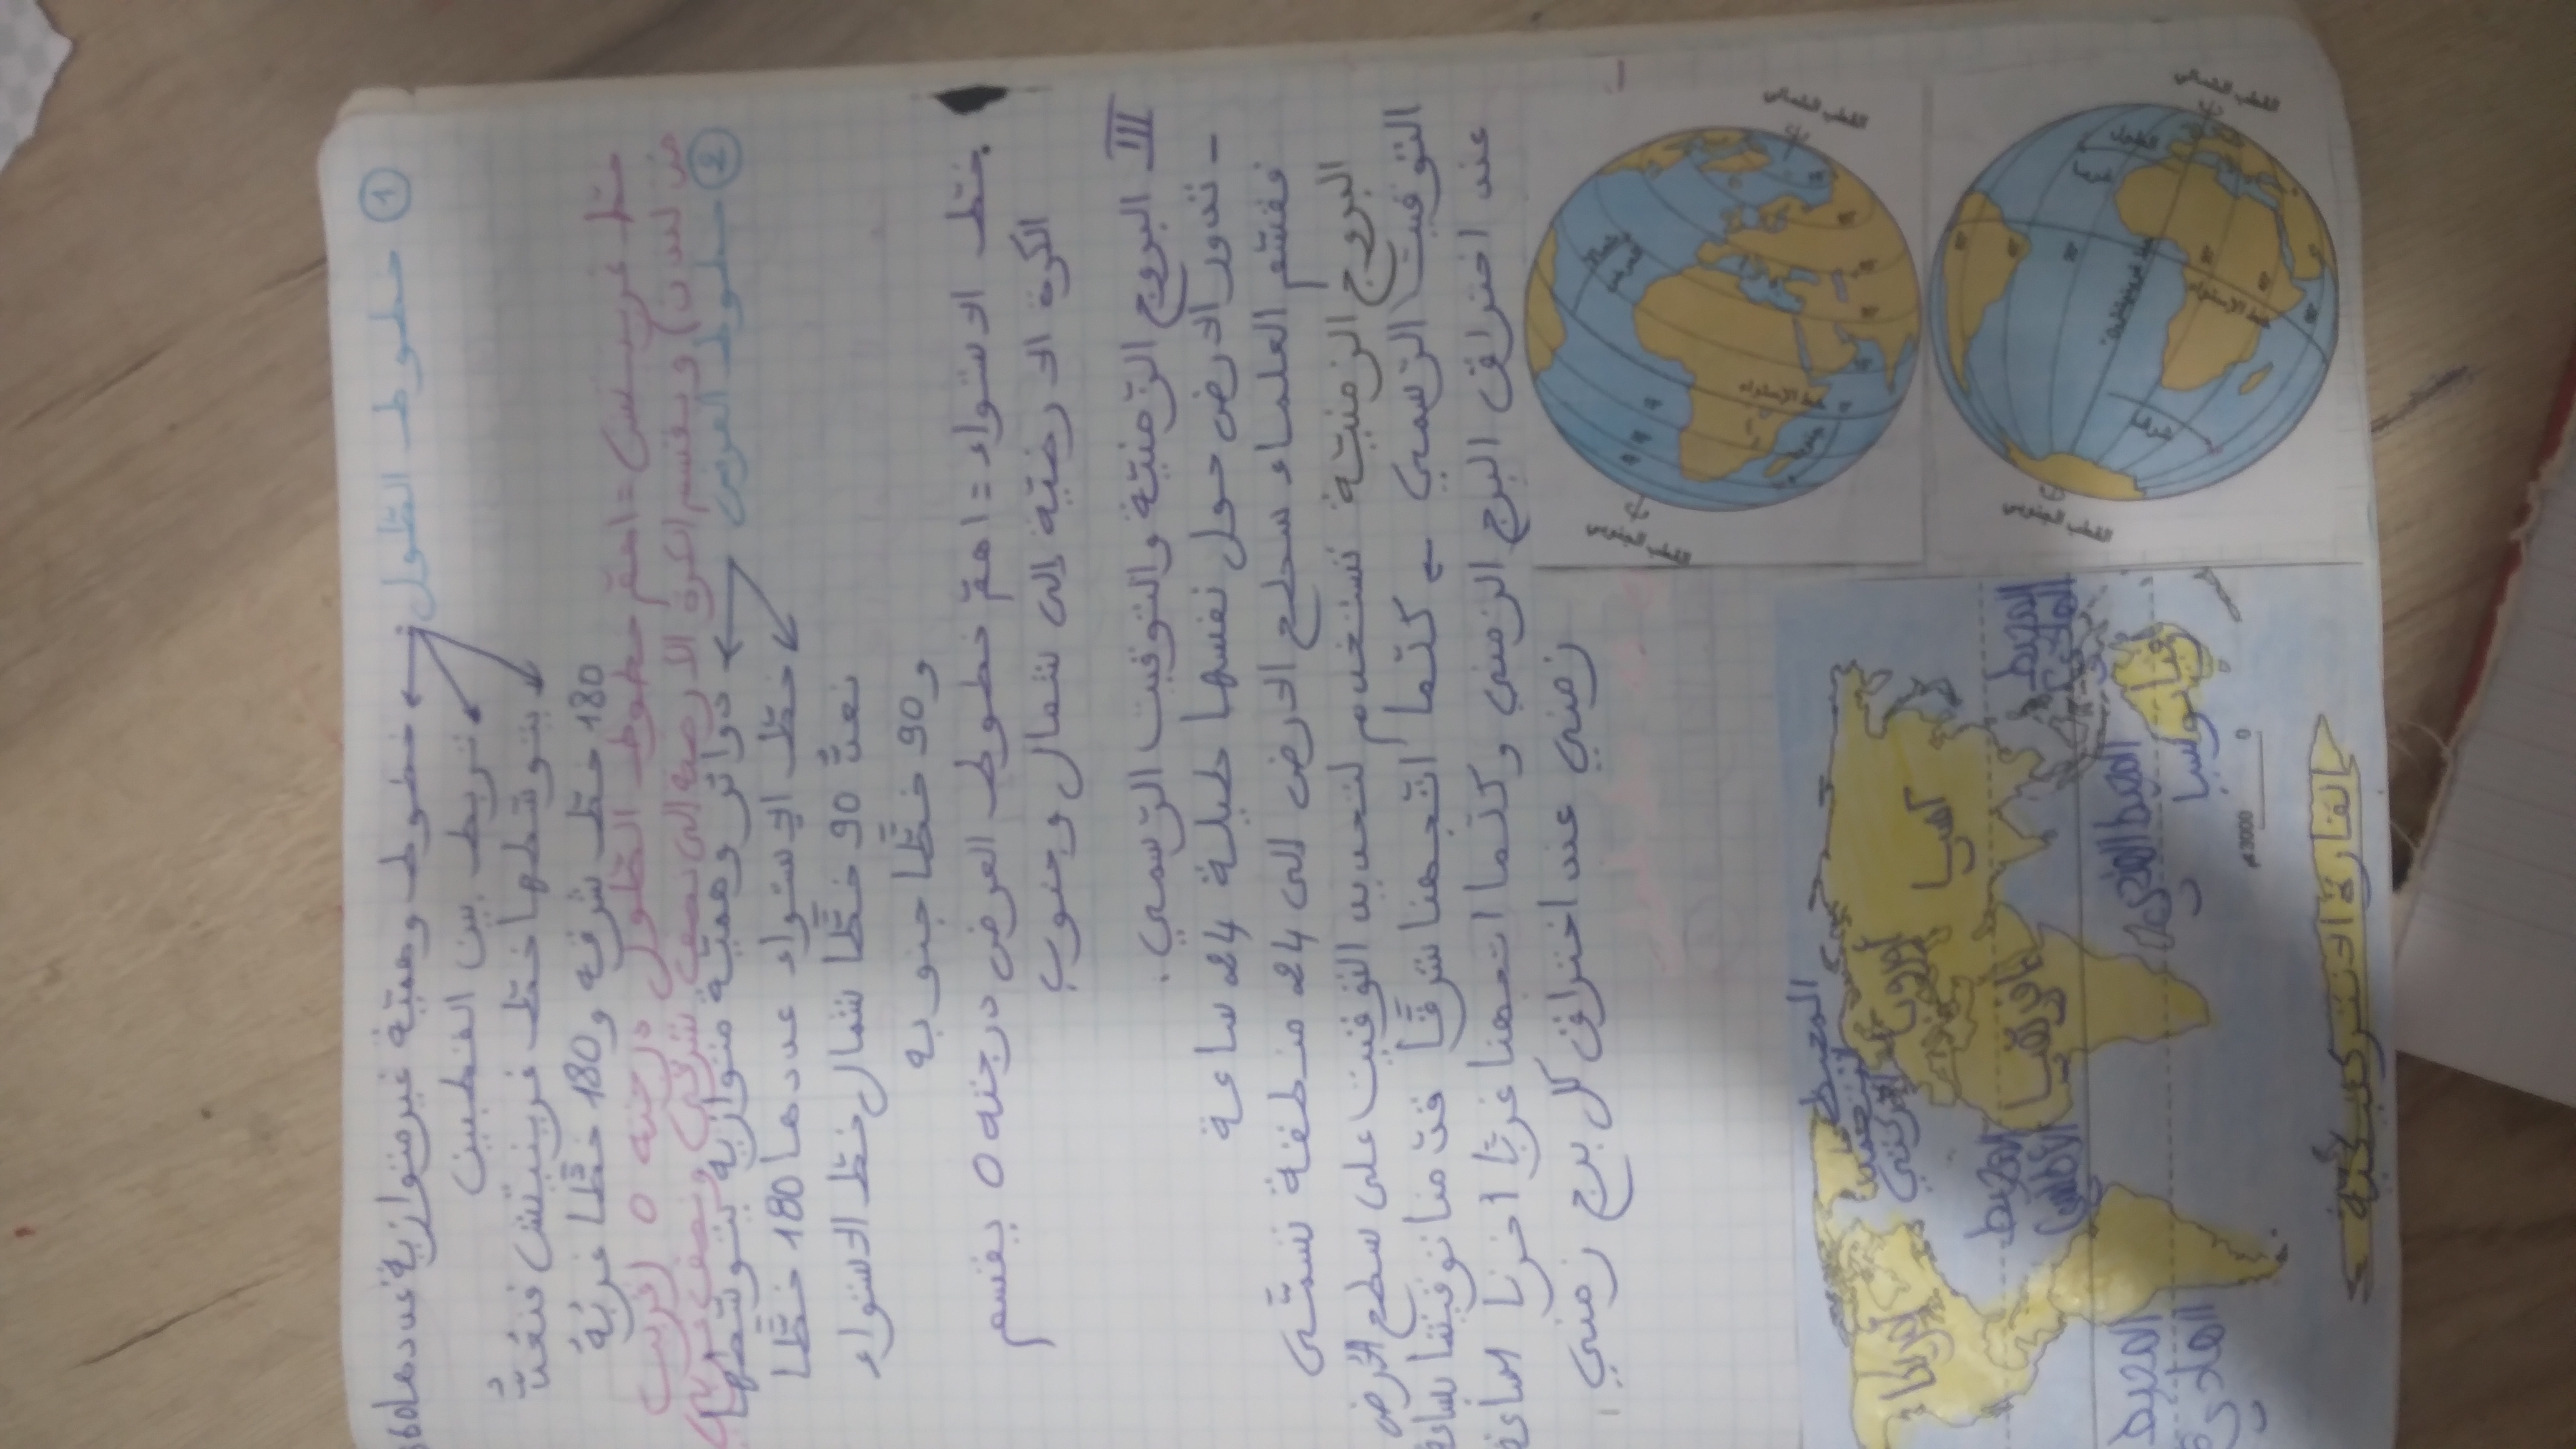 ① خطوط الطّول
خطوط وهميّة غير متوازية عددها 360
تربط بين القطبين
يتوسّطها خطّ غرينيتش فنعُدّ
180 خطّ شرقه و 180 خطّا غربَهُ
خطّ غرينيتش = اهمّ خطوط الطّول درجته 0 (قريب
من لندن) و يقسم الكرة الأرضية إلى نصف شرقي ونصف غربي
② خطوط العرض
دوائر وهميّة متوازية يتوسّطها
خطّ الإستواء عددها 180 خطّا
نعدّ 90 خطًّا شمال خطّ الاستواء
و 90 خطًّا جنوبه
خطّ الاستواء = اهمّ خطوط العرض درجته 0 يقسم
الكرة الارضيّة إلى شمال وجنوب
III البروج الزّمنيّة والتوقيت الرّسمي.
- تدور الارض حول نفسها طيلة 24 ساعة
فقسّم العلماء سطح الارض إلى 24 منطقة تسمّى
البروج الزمنيّة تستخدم لتحديد التوقيت على سطح الأرض
التوقيت الرّسمي كلّما اتّجهنا شرقًا قدّمنا توقيتنا ساعة
عند اختراق البرج الزمني وكلّما اتجهنا غربًا أخّرنا ساعة
زمني عند اختراق كل برج زمني
القطب الشمالي
خط الإستواء
القطب الجنوبي
القطب الشمالي
الطول
غربا
خط غرينيتش
خط الإستواء
شرقا
القطب الجنوبي
المحيط
المتجمد
آسيا
أوروبا
إفريقيا
أمريكا
المحيط
الأطلسي
المحيط
الهادي
المحيط الهندي
المحيط
الهادي
أوقيانوسيا
0
3000كم
القارة الانتركتيكيّة